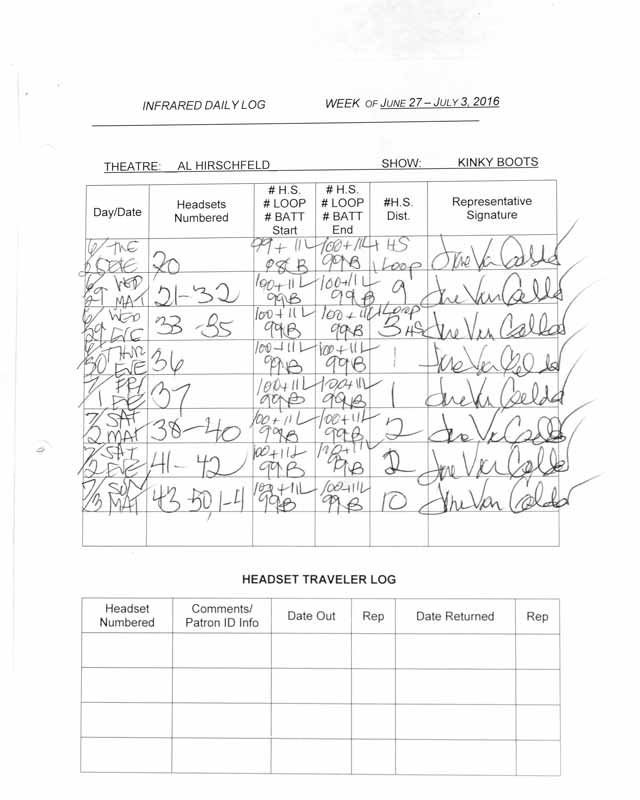 INFRARED DAILY LOG WEEK OF JUNE 27 – JULY 3, 2016
THEATRE: AL HIRSCHFELD SHOW: KINKY BOOTS
Day/Date Headsets Numbered # H.S. # LOOP # BATT Start # H.S. # LOOP # BATT End #H.S. Dist. Representative Signature
6/ TUE EVE 20 99 + 11L 98 B 100 + 11L 99B 1 HS 1 Loop
6/29 WED MAT 21-32 100 + 11L 99B 100 + 11L 99B 9
6/29 WED EVE 33-35 100 + 11L 99B 100 + 11L 99B 1 Loop 3 HS
6/30 THUR EVE 36 100 + 11L 99B 100 + 11L 99B 1
7/1 FRI EVE 37 100 + 11L 99B 100 + 11L 99B 1
7/2 SAT MAT 38-40 100 + 11L 99B 100 + 11L 99B 2
7/2 SAT EVE 41-42 100 + 11L 99B 100 + 11L 99B 2
7/3 SUN MAT 43-50, 1-4 100 + 11L 99B 100 + 11L 99B 10
HEADSET TRAVELER LOG
Headset Numbered Comments/ Patron ID Info Date Out Rep Date Returned Rep